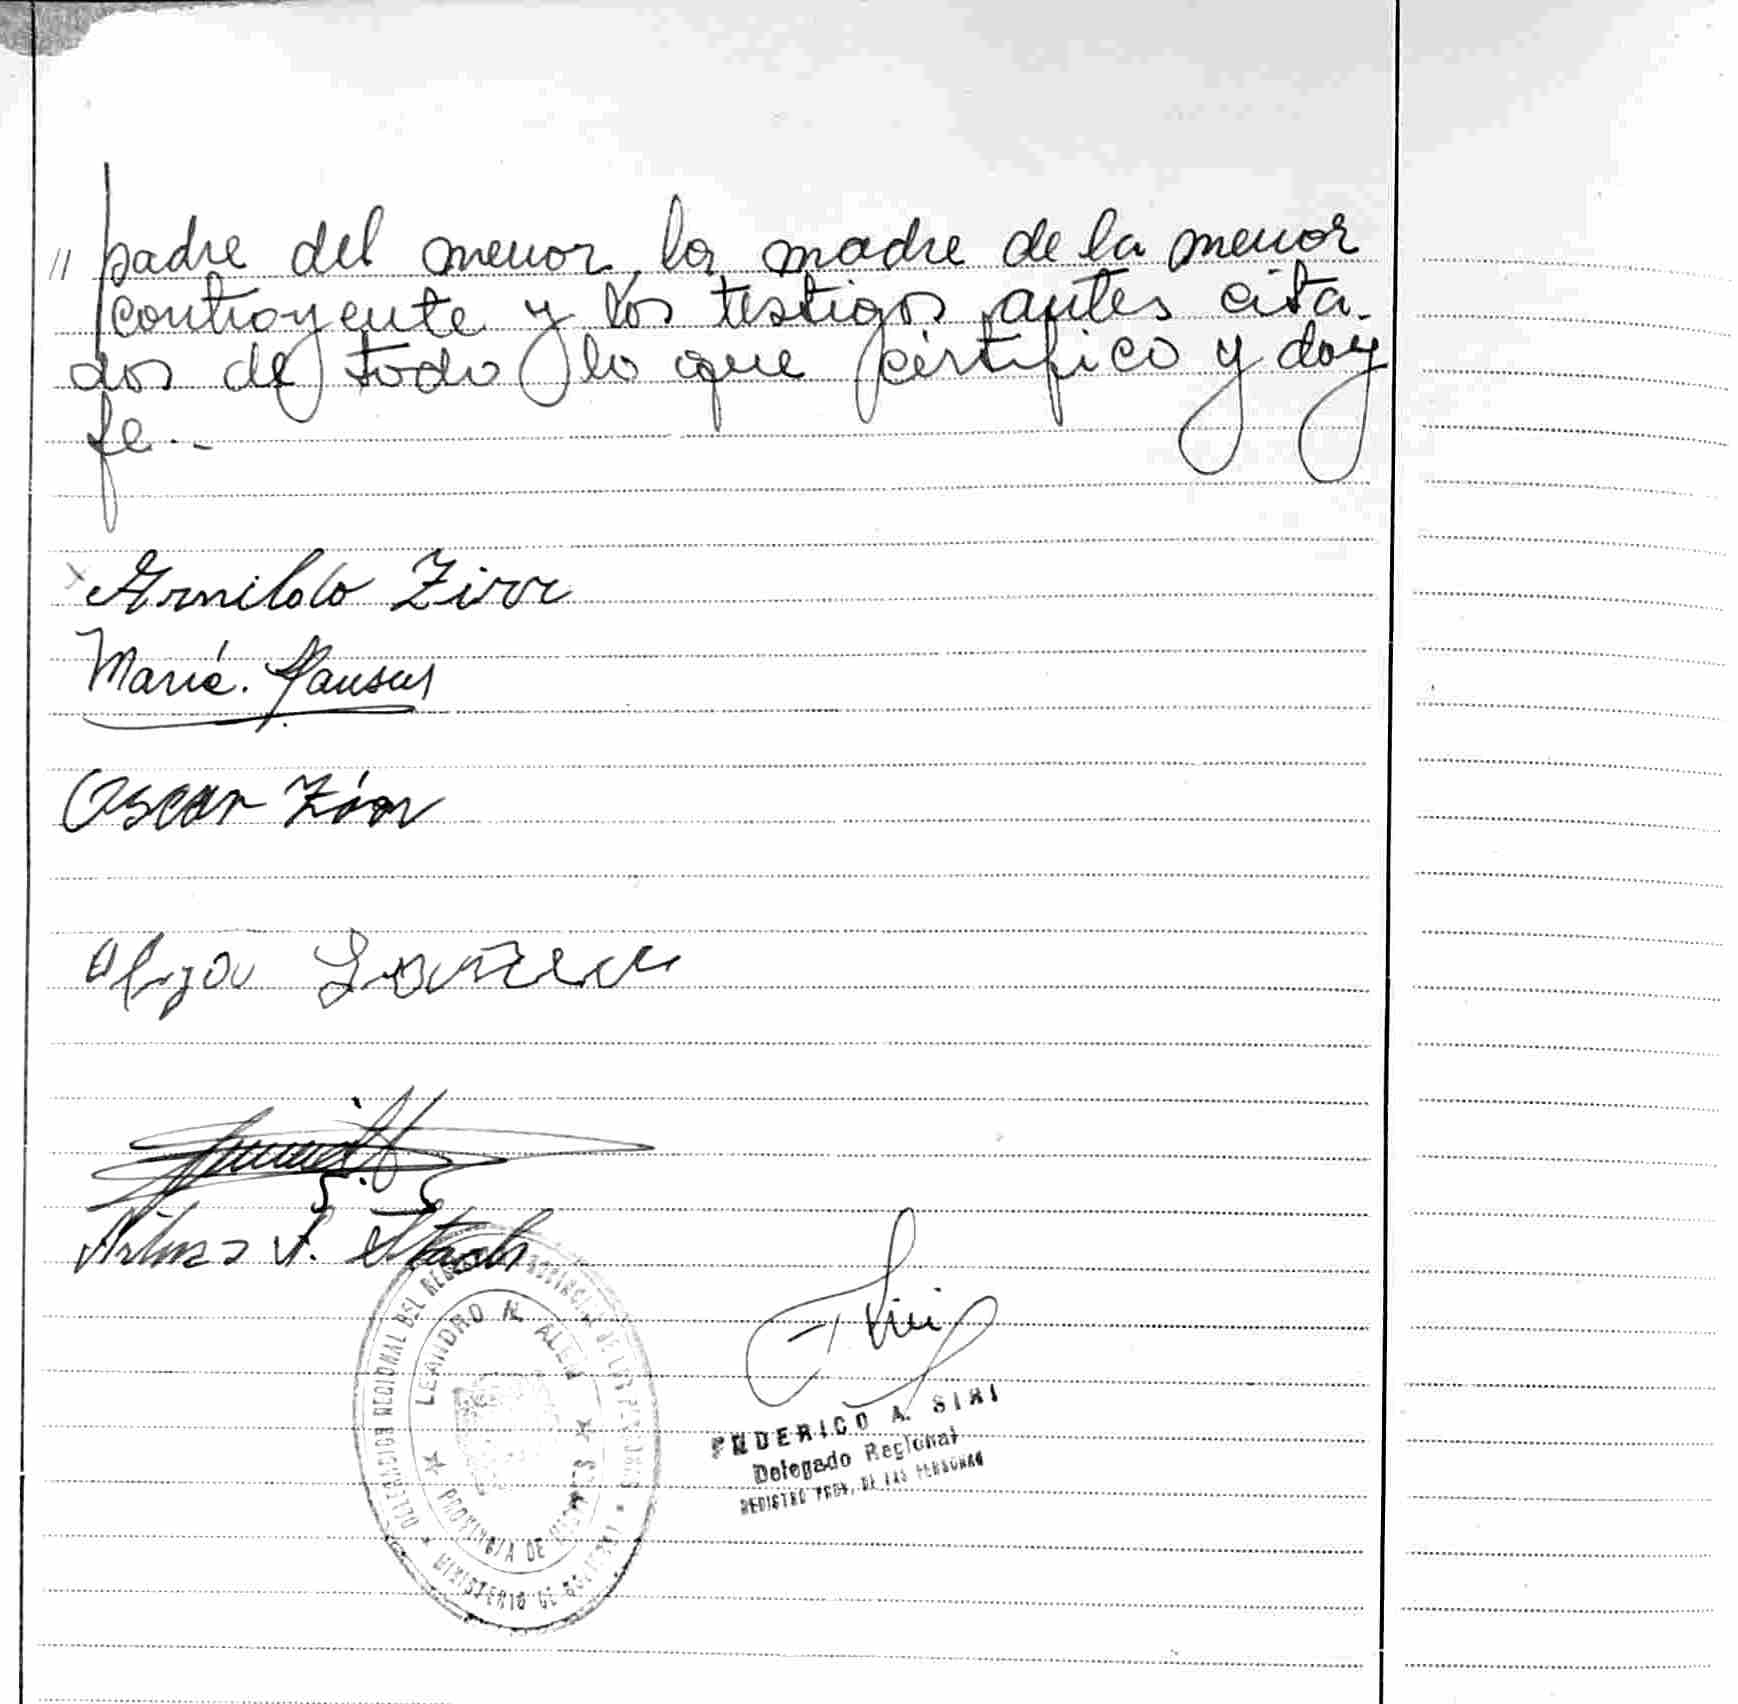 // padre del menor, la madre de la menor
contrayente y los testigos antes cita-
dos de todo lo que certifico y doy
fe.-
Arnildo Zirr
Maria. Hansen
Oscar Zirr
Olga
Arturo A.
FEDERICO A. SIRI
Delegado Regional
REGISTRO PROV. DE LAS PERSONAS
DELEGACION REGIONAL DEL REGISTRO PROVINCIAL DE LAS PERSONAS
★ MINISTERIO DE GOBIERNO ★
LEANDRO N. ALEM
★ PROVINCIA DE MISIONES ★